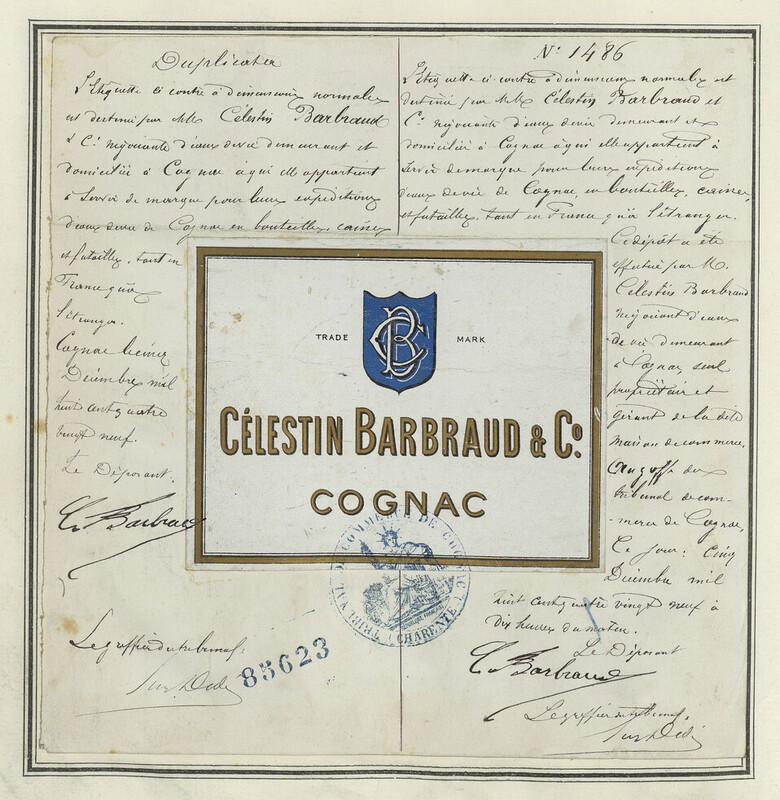 Duplicata
L'Etiquette ci contre à dimensions normales
est destinée par MM. Célestin Barbraud
& Cie négociants d'eaux de vie demeurant et
domiciliés à Cognac à qui elle appartient
à servir de marque pour leurs expéditions
d'eaux de vie de Cognac en bouteilles, caisses
et futailles, tant en
France qu'à
l'étranger.
Cognac le cinq
Décembre mil
huit cent quatre
vingt neuf.
Le Déposant.
C. Barbraud
Le greffier du tribunal:
85623
N° 1486
L'Etiquette ci contre à dimensions normales est
destinée par MM. Célestin Barbraud et
Cie négociants d'eaux de vie demeurant et
domiciliés à Cognac à qui elle appartient à
servir de marque pour leurs expéditions
d'eaux de vie de Cognac, en bouteilles, caisses,
et futailles, tant en France qu'à l'étranger.
Ce dépôt a été
effectué par M.
Célestin Barbraud
négociant d'eaux
de vie demeurant
à Cognac seul
propriétaire et
gérant de la dite
maison de commerce.
Au greffe du
tribunal de com-
merce de Cognac,
Ce jour: Cinq
Décembre mil
huit cent quatre vingt neuf à
dix heures du matin.
Le Déposant
C. Barbraud
Le greffier du tribunal:
TRADE MARK
CB
CÉLESTIN BARBRAUD & Co
COGNAC
TRIBUNAL DE COMMERCE DE COGNAC
(CHARENTE)